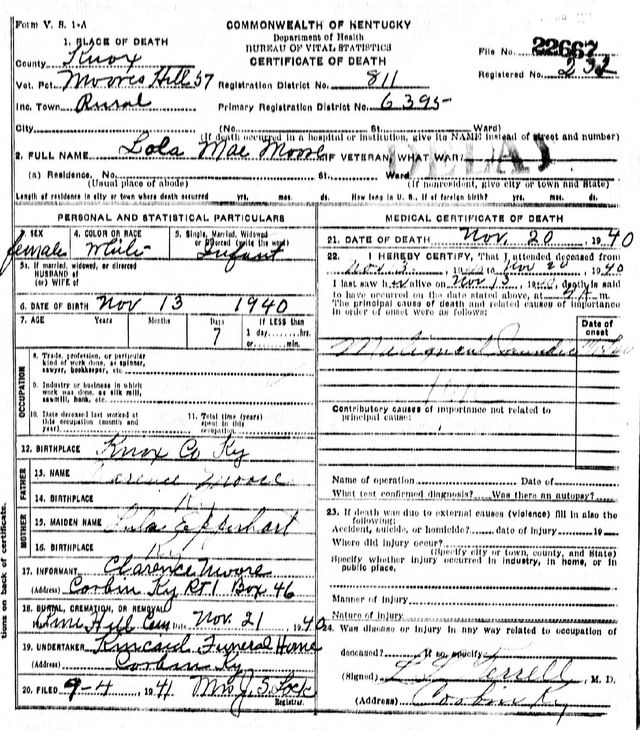 Form V. S. 1-A
COMMONWEALTH OF KENTUCKY
Department of Health
BUREAU OF VITAL STATISTICS
CERTIFICATE OF DEATH
File No. 22667
Registered No. 232
1. PLACE OF DEATH
County Knox
Vot. Pct. Moores Hill 57 Registration District No. 811
Inc. Town Rural Primary Registration District No. 6395
City (No. St. Ward)
(If death occurred in a hospital or institution, give its NAME instead of street and number)
2. FULL NAME Lola Mae Moore IF VETERAN, WHAT WAR?
(a) Residence. No. St. Ward
(Usual place of abode) (If nonresident, give city or town and State)
Length of residence in city or town where death occurred yrs. mos. ds. How long in U. S., if of foreign birth? yrs. mos. ds.
PERSONAL AND STATISTICAL PARTICULARS
3. SEX female
4. COLOR OR RACE White
5. Single, Married, Widowed or Divorced (write the word) Infant
5a. If married, widowed, or divorced
HUSBAND of
(or) WIFE of
6. DATE OF BIRTH Nov 13 1940
7. AGE Years Months Days 7 If LESS than 1 day hrs. or min.
OCCUPATION
8. Trade, profession, or particular kind of work done, as spinner, sawyer, bookkeeper, etc.
9. Industry or business in which work was done, as silk mill, sawmill, bank, etc.
10. Date deceased last worked at this occupation (month and year)
11. Total time (years) spent in this occupation
12. BIRTHPLACE Knox Co Ky
FATHER
13. NAME Clarence Moore
14. BIRTHPLACE Ky
MOTHER
15. MAIDEN NAME
16. BIRTHPLACE Ky
17. INFORMANT Clarence Moore
(Address) Corbin Ky Rt 1 Box 46
18. BURIAL, CREMATION, OR REMOVAL
Hill Cem Date Nov. 21, 1940
19. UNDERTAKER Kincaid Funeral Home
(Address) Corbin Ky
20. FILED 9-4, 1941 Mrs J. S. Lock
Registrar.
MEDICAL CERTIFICATE OF DEATH
21. DATE OF DEATH Nov. 20, 1940
22. I HEREBY CERTIFY, That I attended deceased from
Nov 3, 1940 to Nov 20, 1940
I last saw her alive on Nov 13, 1940, death is said
to have occurred on the date stated above, at m.
The principal cause of death and related causes of importance
in order of onset were as follows:
Date of onset
Malignant Jaundice
Contributory causes of importance not related to
principal cause:
Name of operation Date of
What test confirmed diagnosis? Was there an autopsy?
23. If death was due to external causes (violence) fill in also the
following:
Accident, suicide, or homicide? date of injury 19
Where did injury occur?
(Specify city or town, county, and State)
Specify whether injury occurred in industry, in home, or in
public place.
Manner of injury
Nature of injury
24. Was disease or injury in any way related to occupation of
deceased? If so, specify
(Signed) Terrell, M. D.
(Address) Corbin Ky
tions on back of certificate.